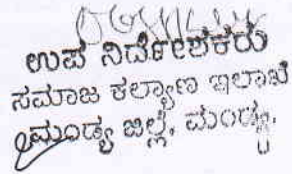 ಉಪ ನಿರ್ದೇಶಕರು
ಸಮಾಜ ಕಲ್ಯಾಣ ಇಲಾಖೆ
ಮಂಡ್ಯ ಜಿಲ್ಲೆ, ಮಂಡ್ಯ.